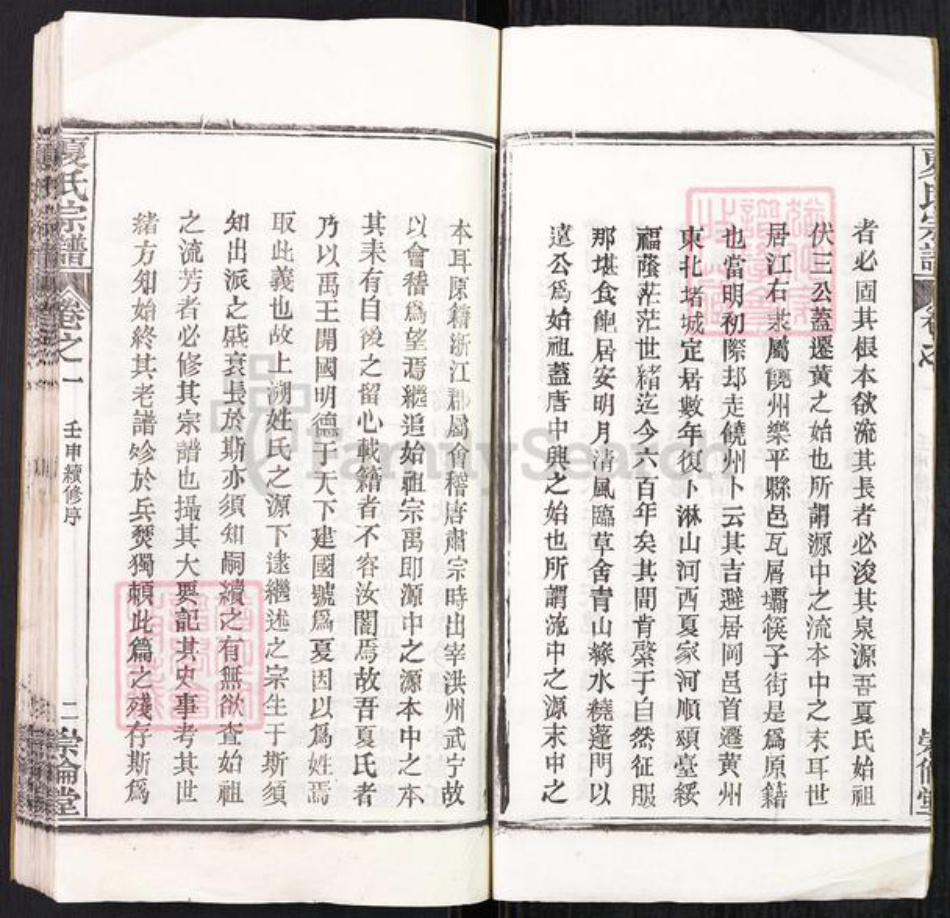 者必固其根本欲流其長者必浚其泉源吾夏氏始祖
伏三公蓋遷黃之始也所謂源中之流本中之末耳世
居江右隶屬饒州樂平縣邑瓦屑壩筷子街是爲原籍
也當明初際却走饒州卜云其吉避居岡邑首遷黃州
東北堵城定居數年復卜淋山河西夏家河順頭臺綏
福蔭茫茫世緒迄今六百年矣其間肯綮于自然征服
那堪食飽居安明月清風臨草舍青山綠水繞蓬門以
遠公爲始祖蓋唐中興之始也所謂流中之源末中之
本耳原籍浙江郡屬會稽唐肅宗時出宰洪州武宁故
以會稽爲望焉繼追始祖宗禹即源中之源本中之本
其来有自後之留心載籍者不容汝闇焉故吾夏氏者
乃以禹王開國明德于天下建國號爲夏因以爲姓焉
取此義也故上溯姓氏之源下逮繼述之宗生于斯須
知出派之盛衰長於斯亦須知嗣續之有無欲查始祖
之流芳者必修其宗譜也撮其大要記其史事考其世
緒方知始終其老譜殄於兵燹獨賴此篇之殘存斯爲
夏氏宗譜
卷之一
壬申續修序
二
崇倫堂
FamilySearch